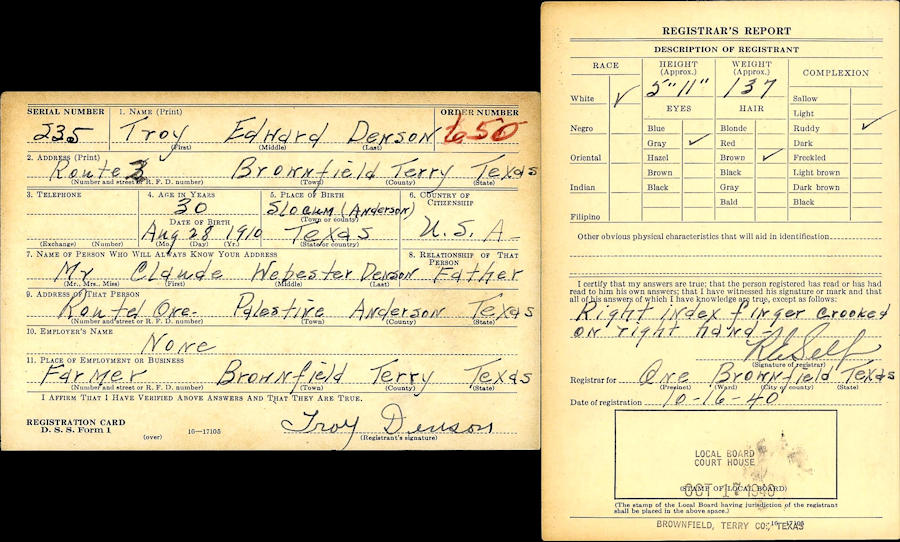 SERIAL NUMBER 1. NAME (Print) ORDER NUMBER
535 Troy Edward Denson 650
(First) (Middle) (Last)
2. ADDRESS (Print)
Route 2 Brownfield Terry Texas
(Number and street or R. F. D. number) (Town) (County) (State)
3. TELEPHONE 4. AGE IN YEARS 5. PLACE OF BIRTH 6. COUNTRY OF CITIZENSHIP
30 Slocum (Anderson)
(Town or county)
DATE OF BIRTH
Aug 28 1910 Texas U.S. A-
(Exchange) (Number) (Mo.) (Day) (Yr.) (State or country)
7. NAME OF PERSON WHO WILL ALWAYS KNOW YOUR ADDRESS 8. RELATIONSHIP OF THAT PERSON
Mr Claude Webester Denson Father
(Mr., Mrs., Miss) (First) (Middle) (Last)
9. ADDRESS OF THAT PERSON
Routd One- Palestine Anderson Texas
(Number and street or R. F. D. number) (Town) (County) (State)
10. EMPLOYER'S NAME
None
11. PLACE OF EMPLOYMENT OR BUSINESS
Farmer Brownfield Terry Texas
(Number and street or R. F. D. number) (Town) (County) (State)
I AFFIRM THAT I HAVE VERIFIED ABOVE ANSWERS AND THAT THEY ARE TRUE.
REGISTRATION CARD
D. S. S. Form 1 (over) 16—17105
Troy Denson
(Registrant's signature)
REGISTRAR'S REPORT
DESCRIPTION OF REGISTRANT
RACE HEIGHT (Approx.) WEIGHT (Approx.) COMPLEXION
White ✓ 5' 11" 137 Sallow
EYES HAIR Light
Negro Blue Blonde Ruddy ✓
Gray ✓ Red Dark
Oriental Hazel Brown ✓ Freckled
Brown Black Light brown
Indian Black Gray Dark brown
Bald Black
Filipino
Other obvious physical characteristics that will aid in identification
I certify that my answers are true; that the person registered has read or has had
read to him his own answers; that I have witnessed his signature or mark and that
all of his answers of which I have knowledge are true, except as follows:
Right index finger crooked
on right hand-
R E Self
(Signature of registrar)
Registrar for One Brownfield Texas
(Precinct) (Ward) (City or county) (State)
Date of registration 10-16-40
LOCAL BOARD
COURT HOUSE
(STAMP OF LOCAL BOARD)
OCT 17 1940
(The stamp of the Local Board having jurisdiction of the registrant
shall be placed in the above space.)
16—17105
BROWNFIELD, TERRY CO., TEXAS